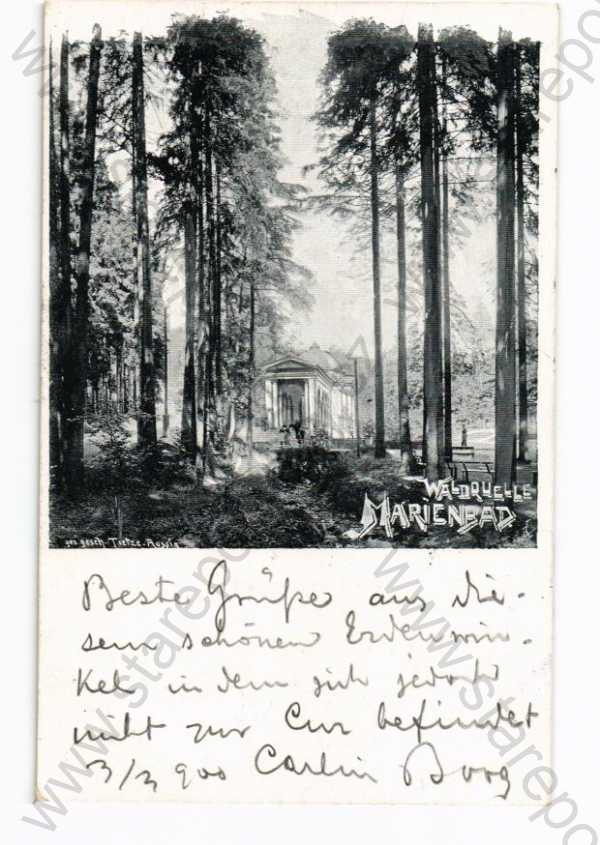 WALDQUELLE
MARIENBAD
Beste Grüße aus die-
sem schönen Erdenwin-
kel in dem sich jedoch
nicht zur Cur befindet
900 Carlin Borg
www.starepo